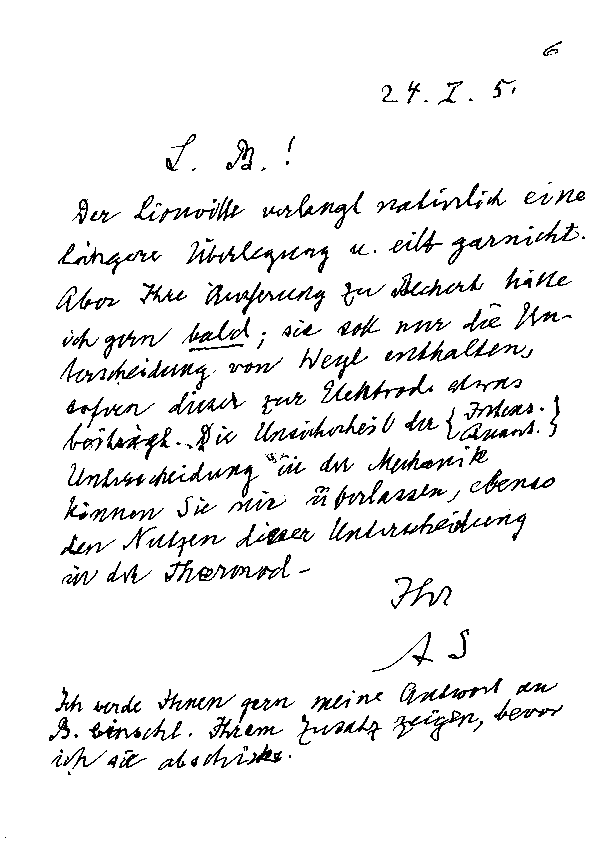 6
24. I. 5.
L. B.!
Der Liouville verlangt natürlich eine
längere Überlegung u. eilt garnicht.
Aber Ihre Äusserung zu Bechert hätte
ich gern bald; sie soll nur die Un-
terscheidung von Weyl enthalten,
sofern dieser zur Elektrod. etwas
beiträgt. Die Unsicherheit der { Intens. }
{ Quant. }
Unterscheidung in der Mechanik
können Sie mir überlassen, ebenso
den Nutzen dieser Unterscheidung
in der Thermod –
Ihr
A S
Ich werde Ihnen gern meine Antwort an
B. einschl. Ihrem Zusatz zeigen, bevor
ich sie abschicke.